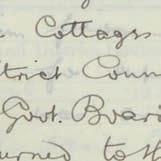 Cottages
trict Coun
Govt. Board
urned to th